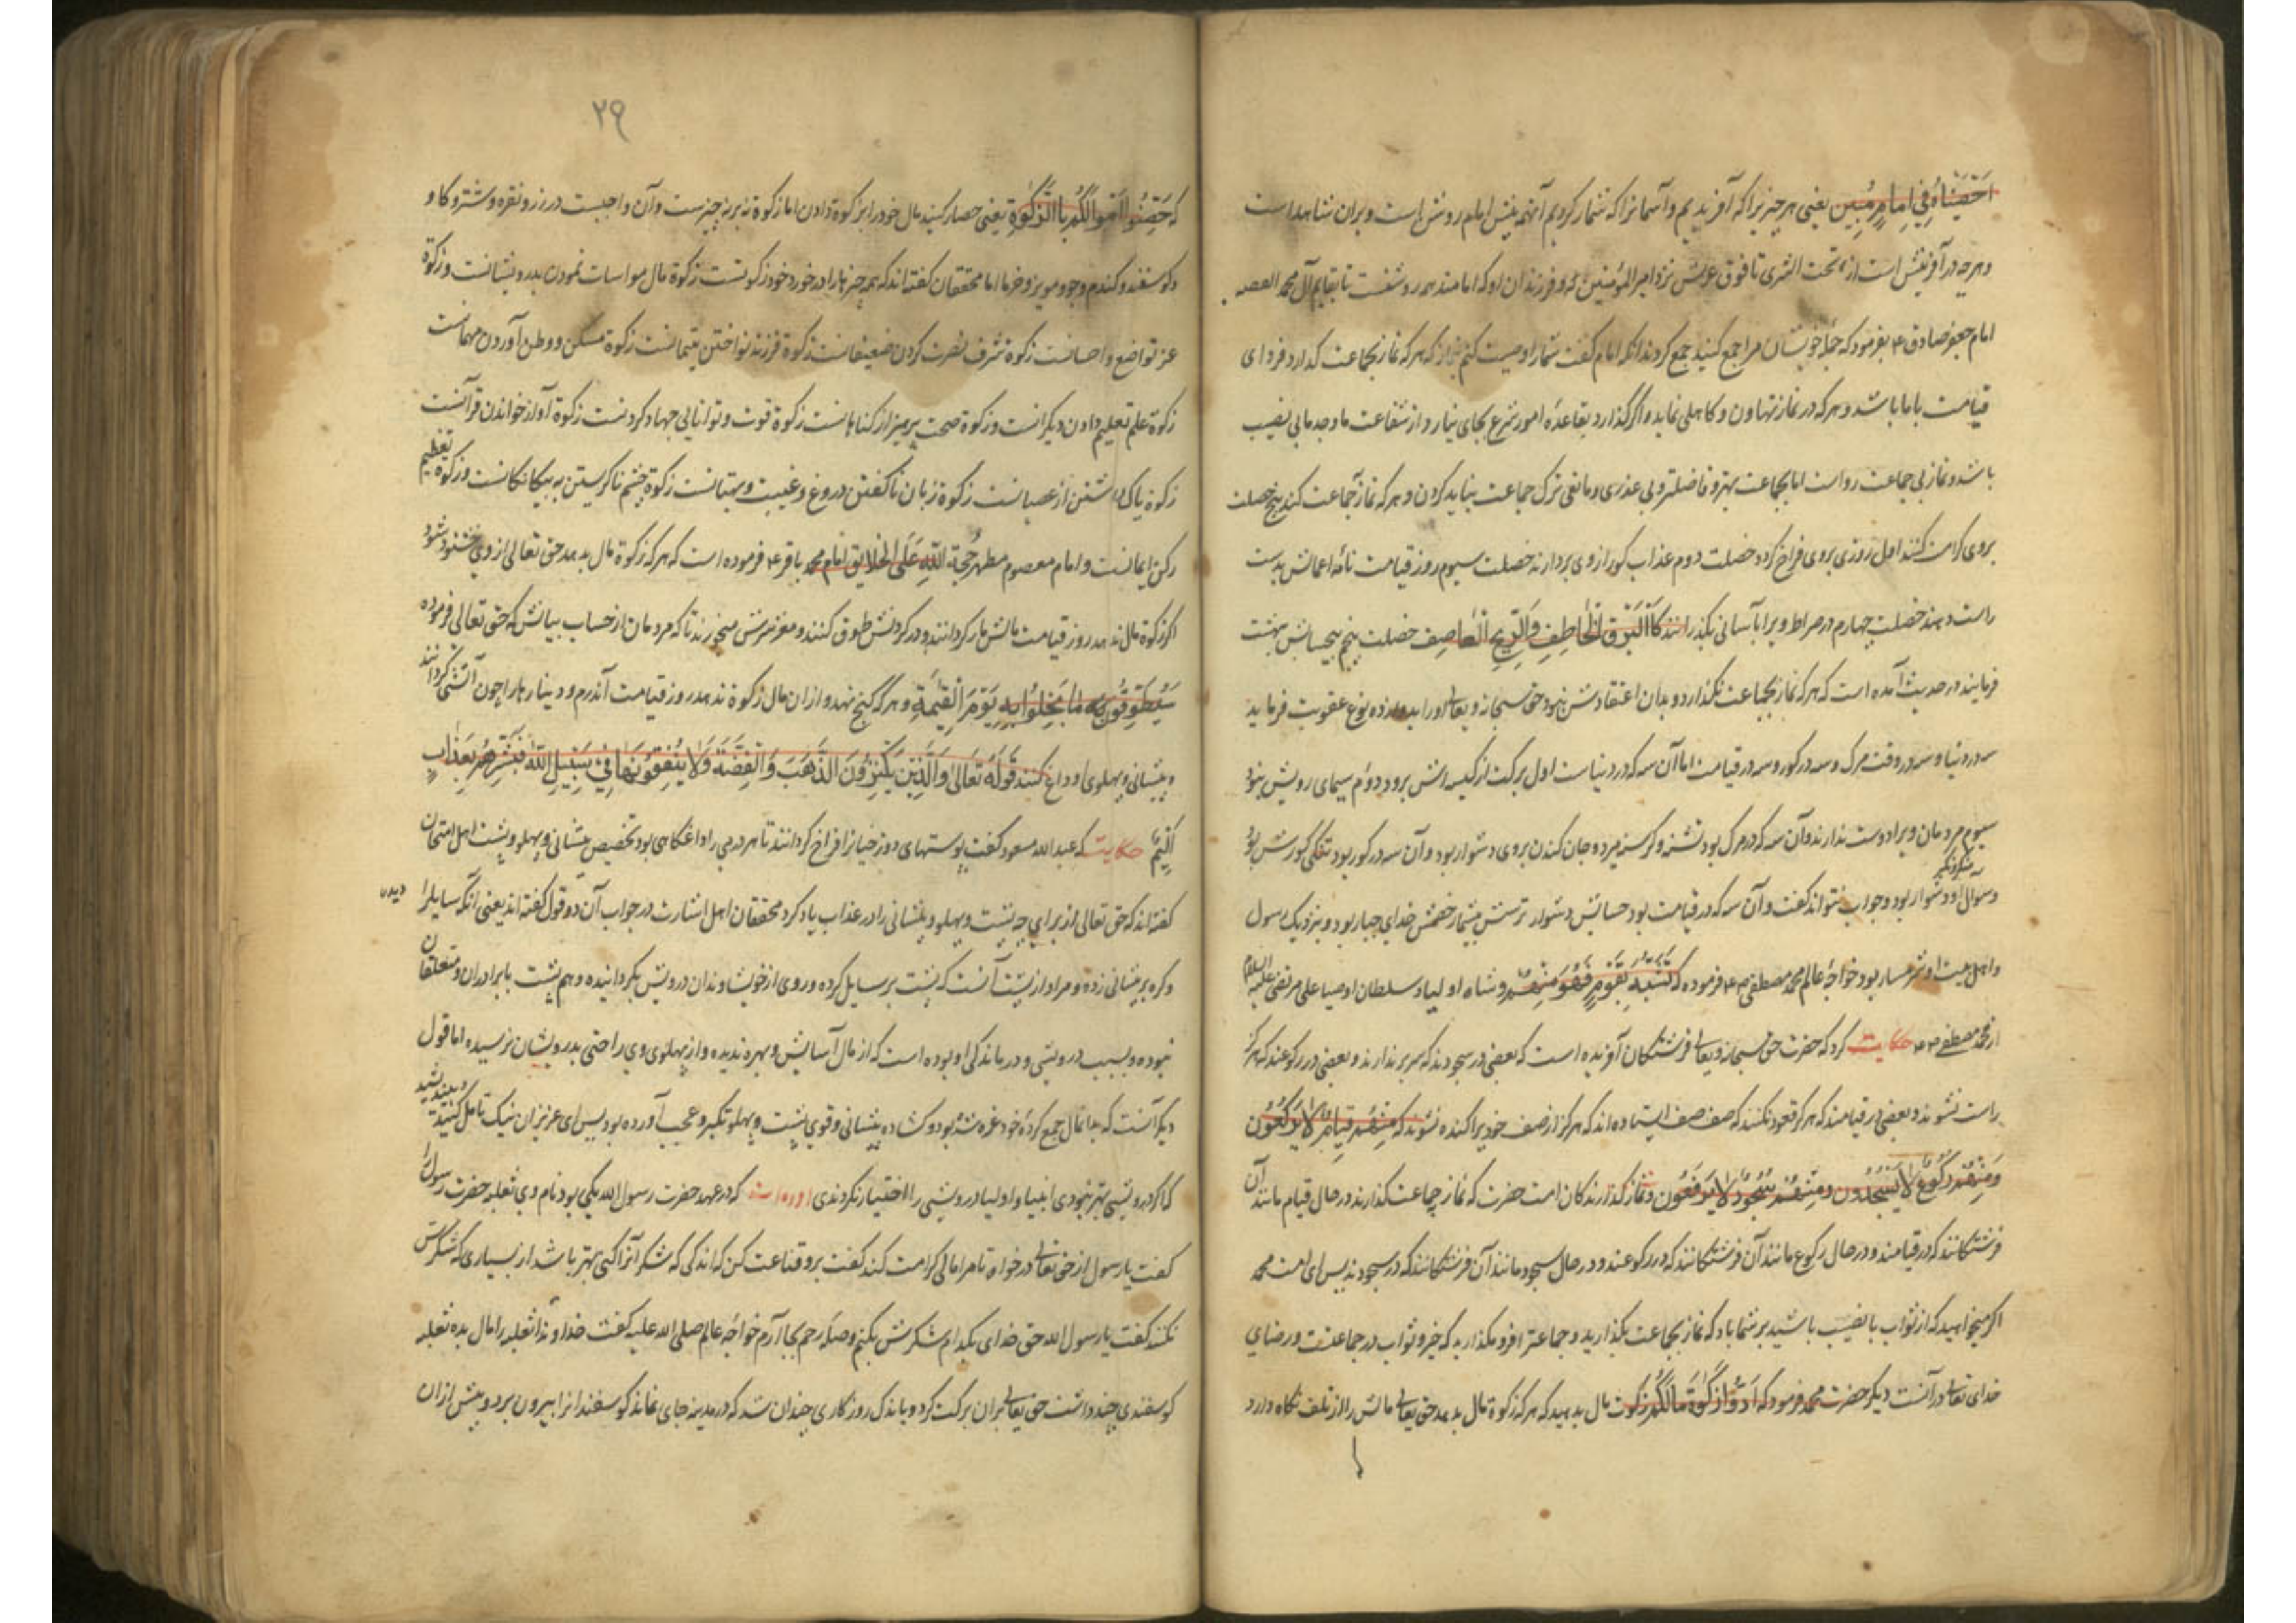 احصیناه فی امام مبین یعنی هر چیزیرا که آفریدیم و آسمانرا که شمار کردیم آنهمه پیش امام روشن است و بران شاهد است
و هر چه در آفرینش است از تحت الثری تا فوق عرش نزد امیر المؤمنین و فرزندان او که امامند همه روشنست تا بقایم آل محمد
امام جعفر صادق ع بفرمود که جمله خویشان مرا جمع کنید جمع کردند آنکه امام گفت شما را وصیت کنم بنماز که هر که نماز بجماعت گذارد فردای
قیامت با ما باشد و هر که در نماز تهاون و کاهلی نماید و اگر گذارد بقاعده امور شرع بجای نیارد از شفاعت ما و جد ما بی نصیب
باشد و نماز بی جماعت رواست اما بجماعت بهتر و فاضلتر و بی عذری و مانعی ترک جماعت نباید کردن و هر که نماز جماعت کند پنج خصلت
بروی کرامت کنند اول روزی بروی فراخ گردد خصلت دوم عذاب گور از وی بردارند خصلت سیوم روز قیامت نامه اعمالش بدست
راست دهند خصلت چهارم در صراط ویرا بآسانی بگذرانند کالبرق الخاطف و الریح العاصف خصلت پنجم بیحسابش بهشت
فرمایند در حدیث آمده است که هر که نماز بجماعت نگذارد و بدان اعتقادش نبود حق سبحانه و تعالی او را بدوازده نوع عقوبت فرماید
سه در دنیا و سه در وقت مرگ و سه در گور و سه در قیامت اما آن سه که در دنیاست اول برکت از کیسه اش برود دوم سیمای رویش بنود
سیوم مردمان ویرا دوست ندارند و آن سه که در مرگ بود تشنه و گرسنه میرد و جان کندن بروی دشوار بود و آن سه در گور بود تنگی گورش بود
و سؤال منکر و نکیر او دشوار بود و جواب نتواند گفت و آن سه که در قیامت بود حسابش دشوار ترسش بیشمار خصمش خدای جبار بود و بنزدیک رسول
و اهل بیت او شرمسار بود خواجه عالم محمد مصطفی فرموده که من تشبه بقوم فهو منهم و شاه اولیا و سلطان اوصیا علی مرتضی علیه السلام
از محمد مصطفی حکایت کرد که حضرت حق سبحانه و تعالی فرشتگان آفریده است که بعضی در سجودند که سر بر ندارند و بعضی در رکوعند که هرگز
راست نشوند و بعضی در قیامند که هرگز قعود نکنند که صف صف ایستاده اند که هرگز از صف خود پراکنده نشوند که منهم قیام لا یرکعون
و منهم رکوع لا یسجدون و منهم سجود لا یرفعون و نماز گذارندگان امت حضرت که نماز بجماعت گذارند در حال قیام مانند آن
فرشتگانند که در قیامند و در حال رکوع مانند آن فرشتگانند که در رکوعند و در حال سجود مانند آن فرشتگانند که در سجودند پس ای امت محمد
اگر میخواهید که از ثواب با نصیب باشید بر شما باد که نماز بجماعت بگذارید و جماعت را فرو مگذارید که خیر و ثواب در جماعتست و رضای
خدای تعالی در آنست دیگر حضرت محمد فرمود که ادوا زکوة مالکم زکوت مال بدهید که هر که زکوة مال بدهد حق تعالی مالش را از تلف نگاه دارد
۲۹
که حصنوا اموالکم بالزکوة یعنی حصار کنید مال خود را بزکوة دادن اما زکوة نه بر نه چیزست و آن واجبست در زر و نقره و شتر و گاو
و گوسفند و گندم و جو و مویز و خرما اما محققان گفته اند که همه چیزها را در خورد خود زکوتست زکوة مال مواسات نمودن بدرویشانست و زکوة
عز تواضع و احسانست زکوة شرف نصرت کردن ضعیفانست زکوة فرزند نواختن یتیمانست زکوة مسکن و وطن آوردن مهمانست
زکوة علم تعلیم دادن دیگرانست و زکوة صحت پرهیز از گناهانست زکوة قوت و توانایی جهاد کردنست زکوة آواز خواندن قرآنست
زکوة پاکی شستن از عصیانست زکوة زبان ناگفتن دروغ و غیبت و بهتانست زکوة چشم ناگریستن به بیگانگانست و زکوة تعظیم
رکن ایمانست و امام معصوم مطهر حجة الله علی الخلایق امام محمد باقر ع فرموده است که هر که زکوة مال بدهد حق تعالی از وی خشنود شود
اگر زکوة مال ندهد روز قیامت مالش مار گردانند و در گردنش طوق کنند و مغز سرش میخورند تا که مردمان از حساب بیانش که حق تعالی فرموده
سیطوقون ما بخلوا به یوم القیمة و هر که گنج نهد و ازان مال زکوة ندهد روز قیامت آن درم و دینارها را چون آتشی گردانند
و پیشانی و پهلوی او داغ کنند قوله تعالی و الذین یکنزون الذهب و الفضة و لا ینفقونها فی سبیل الله فبشرهم بعذاب
الیم حکایت که عبدالله مسعود گفت پوستهای دوزخیانرا فراخ گردانند تا هر درمی را داغگاهی بود تخصیص پیشانی و پهلو و پشت اهل امتحان
گفته اند که حق تعالی از برای چه پشت و پهلو و پیشانی را در عذاب یاد کرد محققان اهل اشارت در جواب آن دو قول گفته اند یعنی آنکه سایلرا دیدن
و گره بر پیشانی زده و مراد از پشت آنست که پشت بر سایل کرده و روی از خویشاوندان درویش بگردانیده و هم پشت با برادران و متعلقان
نبوده و بسبب درویشی و درماندگی او بوده است که از مال آسایش و بهره ندیده و از پهلوی وی راحتی بدرویشان نرسیده اما قول
دیگر آنست که بدان مال جمع کرده خود غره شده بود و گشاده پیشانی و قوی پشت و پهلو تکبر و عجب آورده بود پس ای عزیزان نیک تامل کنید و بیندیشید
که اگر درویشی بهتر نبودی انبیا و اولیا درویشی را اختیار نکردندی آورده است که در عهد حضرت رسول الله یکی بود نام وی ثعلبه حضرت رسول را
گفت یا رسول از حق تعالی درخواه تا مرا مالی کرامت کند گفت برو قناعت کن که اندکی که شکر آنرا کنی بهتر باشد از بسیاری که شکرش
نکنند گفت یا رسول الله حق خدای بگذارم شکرش بکنم و صله رحم بجا آرم خواجه عالم صلی الله علیه گفت خداوندا ثعلبه را مال بده ثعلبه
گوسفندی چند داشت حق تعالی بران برکت کرد و باندک روزگاری چندان شد که در مدینه جای نماند گوسفندانرا بیرون برد و پیش ازان